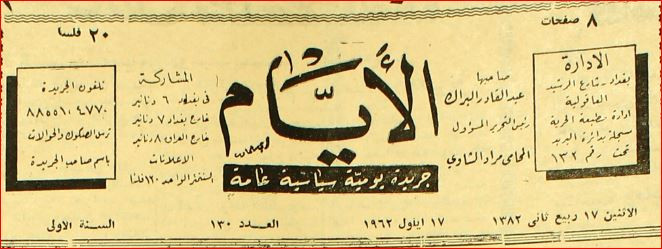 ٨ صفحات
٢٠ فلسا
الادارة
بغداد - شارع الرشيد
العاقولية
ادارة مطبعة الحرية
مسجلة بدائرة البريد
تحت رقم ١٣٢
صاحبها
عبد القادر البراك
رئيس التحرير المسؤول
المحامي مراد الشاوي
الأيام
جريدة يومية سياسية عامة
المشاركة
في بغداد ٦ دنانير
خارج بغداد ٧ دنانير
خارج العراق ٨ دنانير
الاعلانات
للسنتمتر الواحد ١٢٠ فلسا
تلفون الجريدة
٨٨٥٥١٠٤٧٧٠
ترسل الصكوك والحوالات
باسم صاحب الجريدة
الاثنين ١٧ ربيع ثانى ١٣٨٢
١٧ ايلول ١٩٦٢
العدد ١٣٠
السنة الاولى